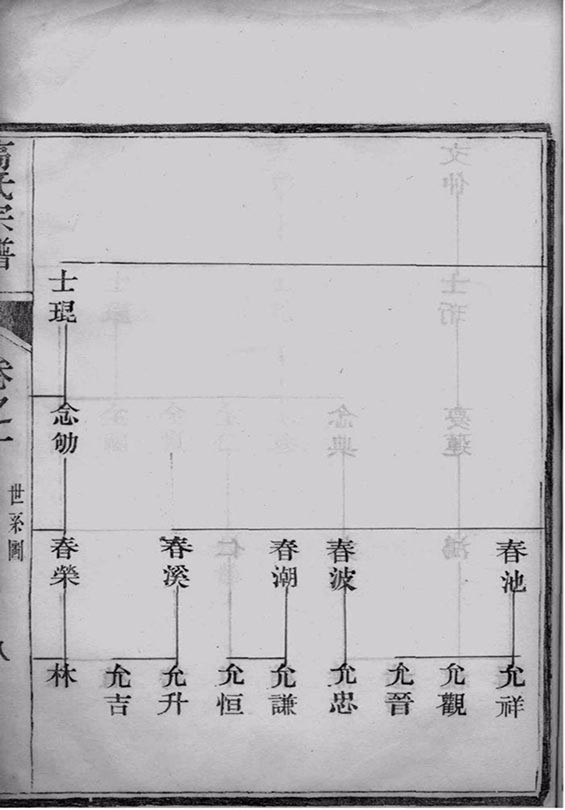 士琨
念劬
春池
春波
春潮
春溪
春榮
允祥
允觀
允晉
允忠
允謙
允恒
允升
允吉
林
氏宗譜
卷之一
世系圖
八